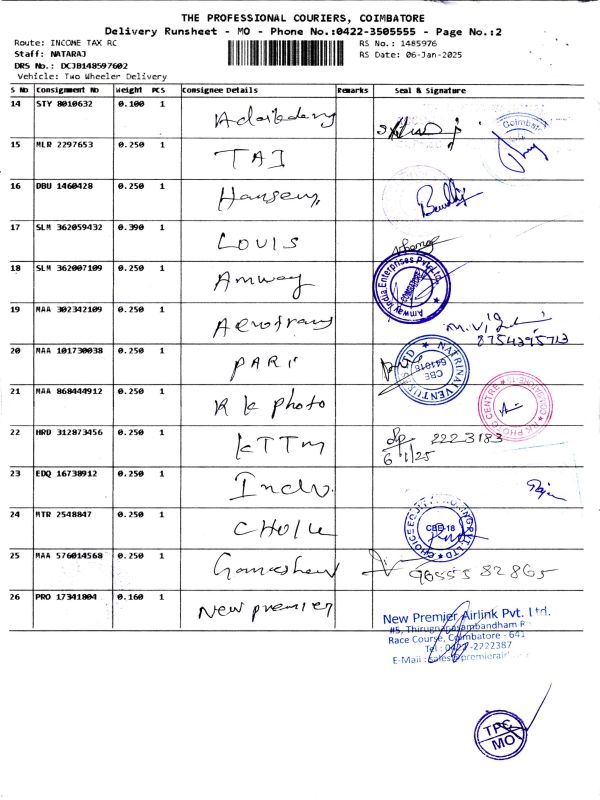 THE PROFESSIONAL COURIERS, COIMBATORE
Delivery Runsheet - MO - Phone No.:0422-3505555 - Page No.:2
Route: INCOME TAX RC RS No.: 1485976
Staff: NATARAJ RS Date: 06-Jan-2025
DRS No.: DCJB148597602
Vehicle: Two Wheeler Delivery
S No Consignment No Weight PCS Consignee Details Remarks Seal & Signature
14 STY 8010632 0.100 1
Coimbato
15 MLR 2297653 0.250 1 TAI
16 DBU 1460428 0.250 1 Hansen
17 SLM 362059432 0.390 1 LOUIS
18 SLM 362007109 0.250 1 Amway
Amway India Enterprises Pvt. Ltd.
19 MAA 302342109 0.250 1 Aerotrans
8754395713
20 MAA 101730038 0.250 1 PARI
NATRINAI VENTURES LTD
CBE
641018
21 MAA 868444912 0.250 1 R K photo
RK PHOTO CENTRE
22 HRD 312873456 0.250 1 KTTM 2223183
6/1/25
23 EDQ 16738912 0.250 1
24 MTR 2548847 0.250 1
CBE-18
25 MAA 576014568 0.250 1 98555 82865
26 PRO 17341804 0.160 1 New premier
New Premier Airlink Pvt. Ltd.
#5, Thirugnanasambandham R
Race Course, Coimbatore - 641
Tel : 0422-2222387
E-Mail : sales@premierair
TPC
MO